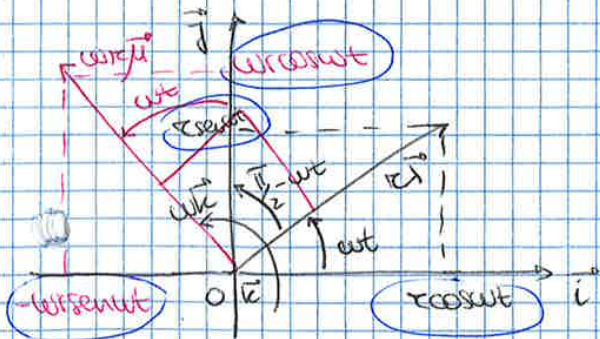 j
ωrμ
ωrcosωt
ωt
rsenωt
rλ
π/2-ωt
ωk
ωt
-ωrsenωt
O
k
rcosωt
i